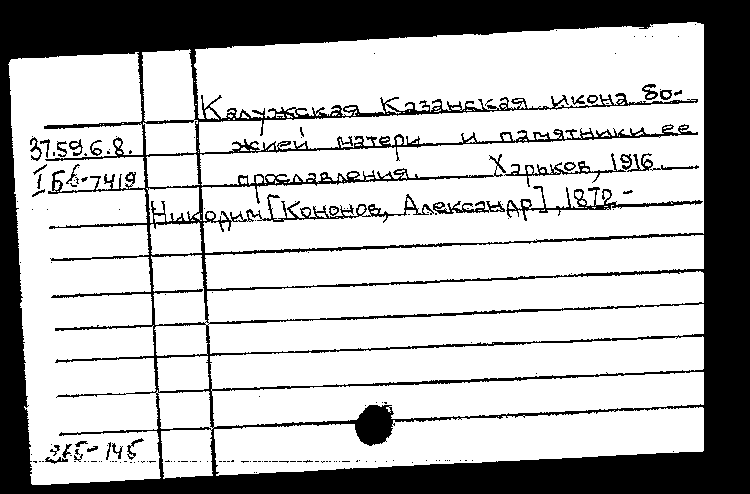 Калужская Казанская икона бо-
37.59.6.8. жией матери и памятники ее
I Бб-7419 прославления. Харьков, 1916.
Никодим [Кононов, Александр], 1872-
265-145